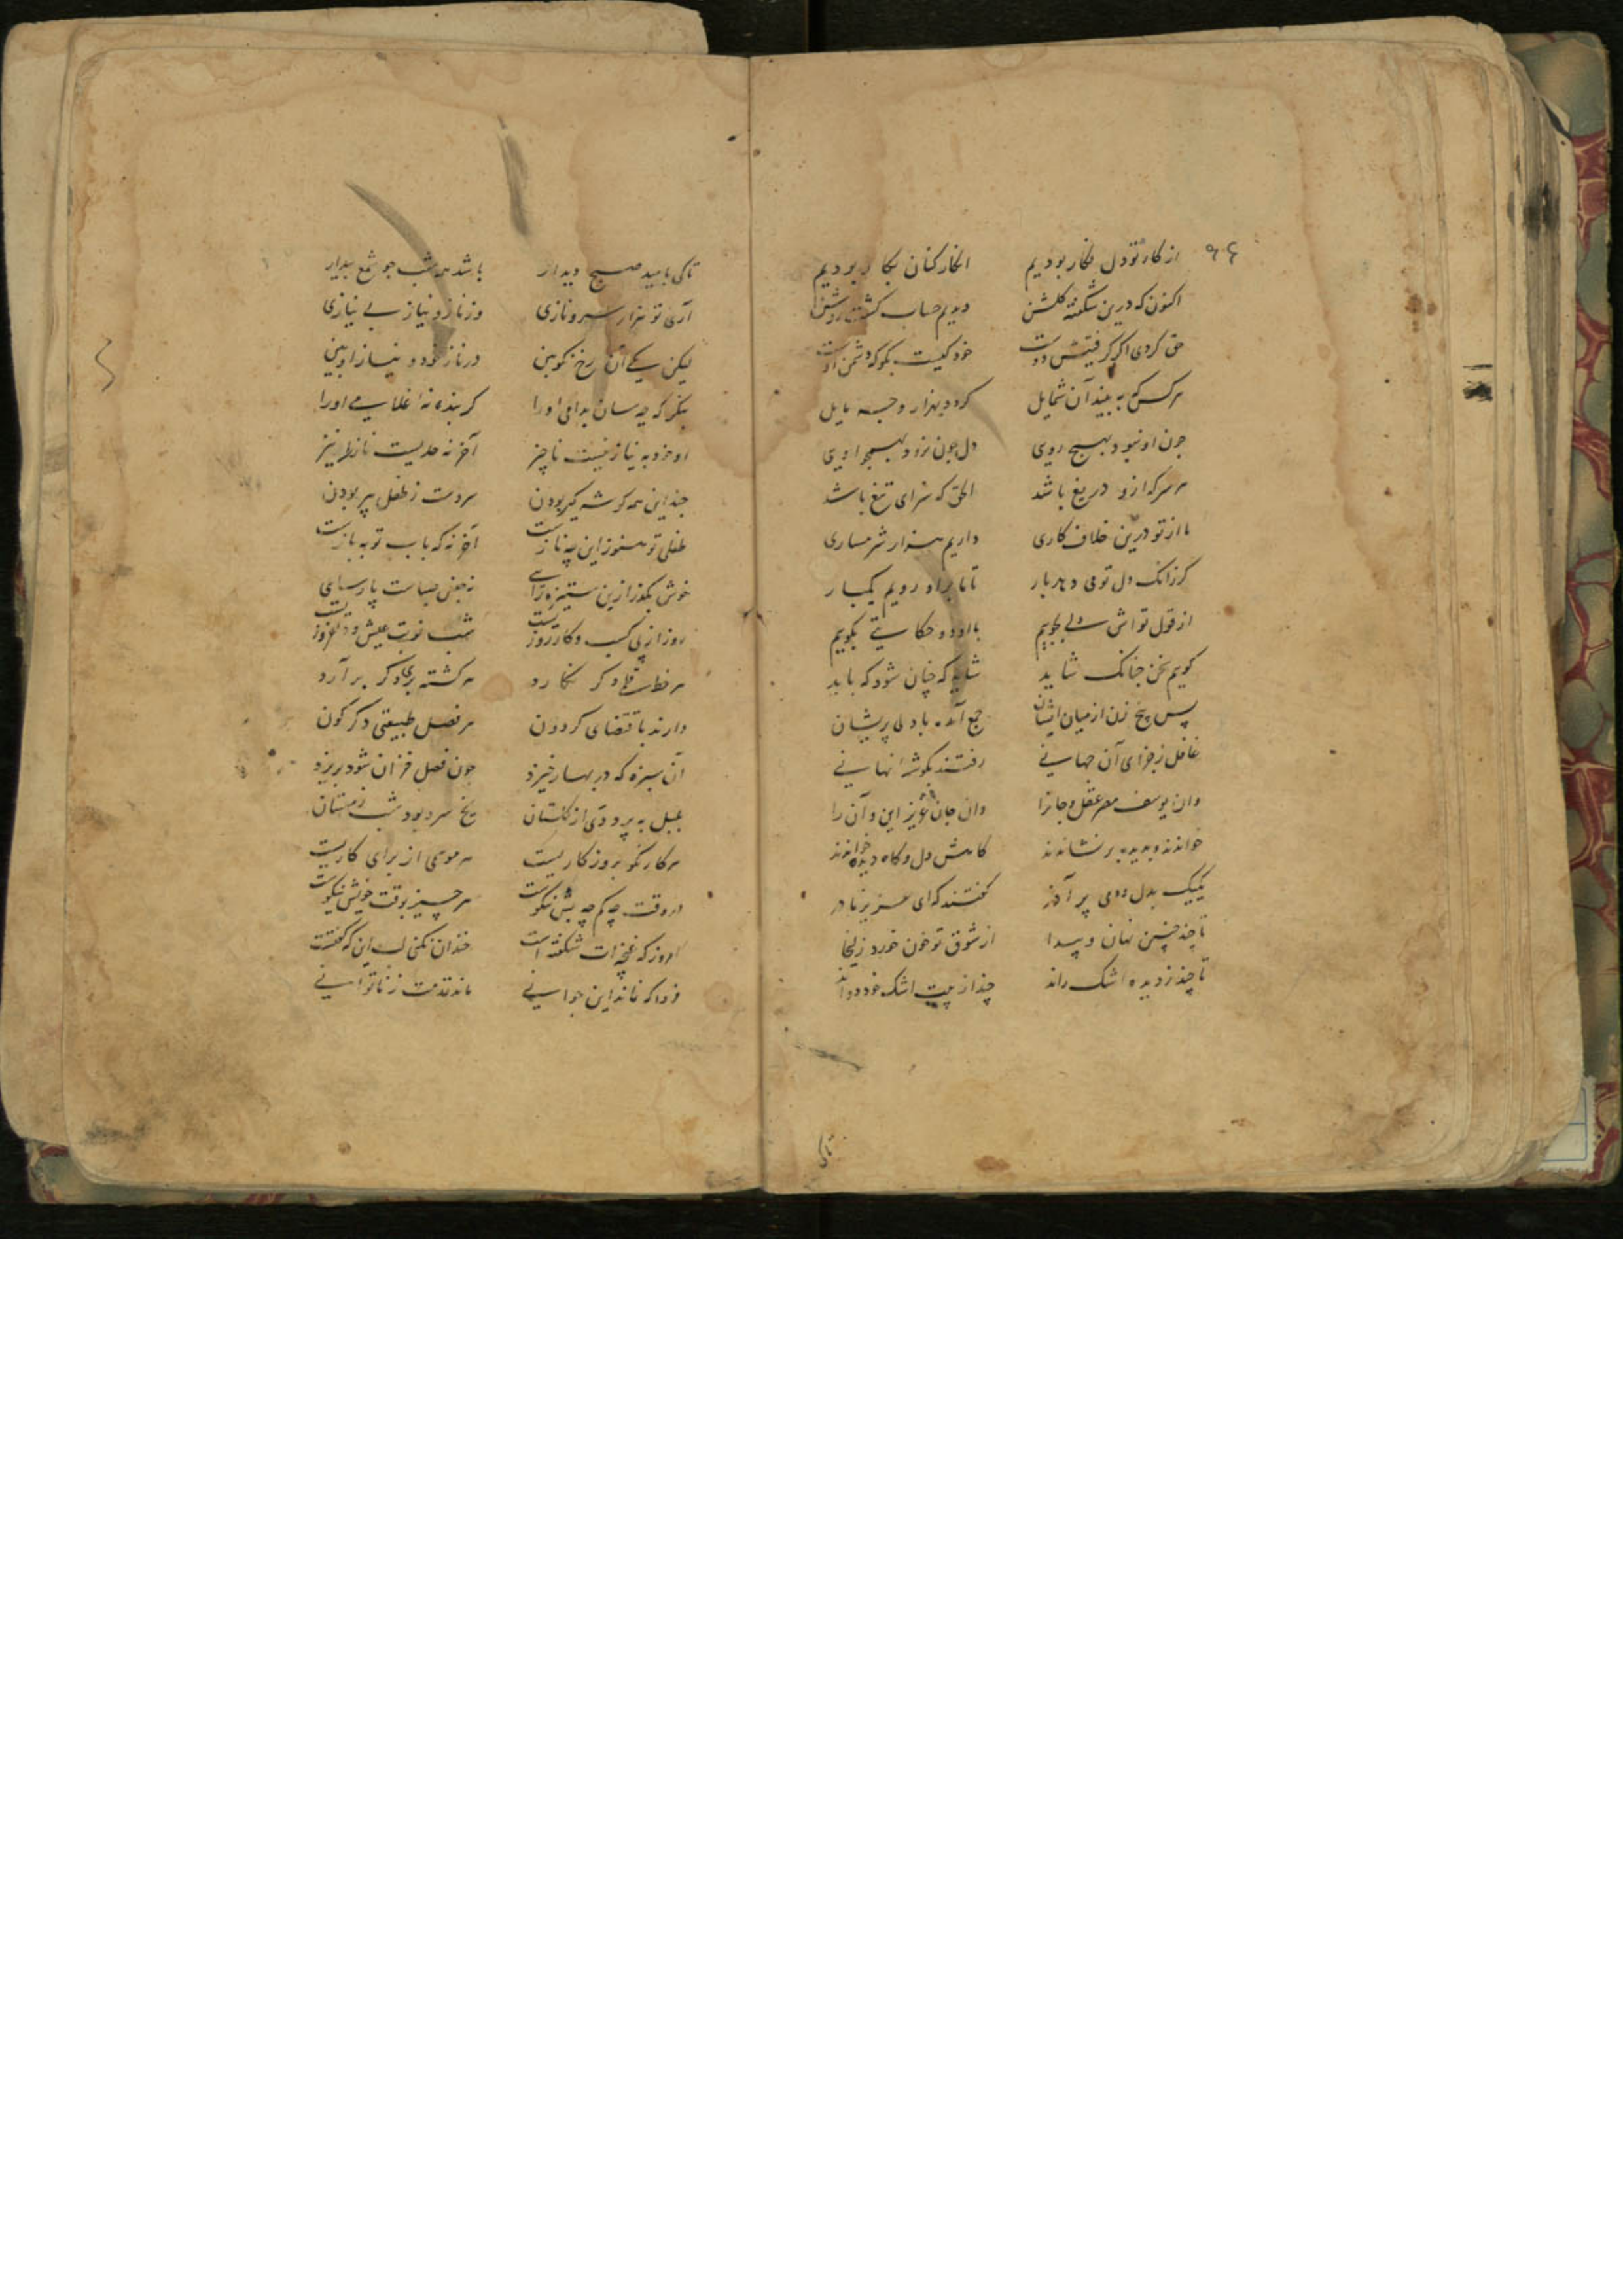 از کار تو دل فکار بودیم
انکار کنان بکار بودیم
اکنون که درین شکفته گلشن
دیدیم حساب گشت روشن
حق کردی اگر گرفتیش دوست
خود کیست بگو که دشمن اوست
هر کس که به بیند آن شمایل
گردد بهزار وجه مایل
چون او نبود بهیچ روی
دل چون نرود بهیچ اوی
هر سر که ازو دریغ باشد
الحق که سزای تیغ باشد
ما از تو درین خلاف کاری
داریم هزار شرمساری
گر زانک دل تو می دهد بار
تا ما بر او رویم یکبار
از قول تواش دلی بجوییم
با او دو حکایتی بگوییم
گوییم سخن چنانک شاید
شاید که چنان شود که باید
پس پنج زن از میان ایشان
جمع آمده با دل پریشان
غافل ز جزای آن جهانی
رفتند بگوشه نهانی
وان یوسف مصر عقل و جانرا
وان جان عزیز این و آن را
خواندند و بدیده بر نشاندند
کامش دل و کاه دیده خواندند
یکیک بدل و دمی پر آذر
گفتند که ای عزیز مادر
تا چند چنین نهان و پیدا
از شوق تو خون خورد زلیخا
تا چند ز دیده اشک راند
چند از پیت اشک خود دواند
تاکی
تاکی بامید صبح دیدار
باشد همه شب چو شمع بیدار
آری تو هزار سرو نازی
وز ناز و نیاز بی نیازی
لیکن یکی آن رخ نکو بین
در ناز خود و نیاز او بین
بنگر که چه سان بدامی او را
گر بنده نه غلامی او را
او خود به نیاز نیست ناچیز
آخر نه حدیست ناز را نیز
چند این همه گوشه گیر بودن
سردست ز طفل پیر بودن
طفلی تو هنوز این چه نازست
آخر نه که باب توبه بازست
خوش بگذر ازین ستیزه رای
روز از پی کسب و کار روزیست
شب نوبت عیش و دلفروزیست
هر خط قلم دگر نگارد
هر کشته بری دگر بر آرد
دارند باقتضای گردون
هر فصل طبیعتی دگرگون
آن سبزه که در بهار خیزد
چون فصل خزان شود بریزد
بلبل به پرد ودی از گلستان
یخ سرد بود شب زمستان
هر کار نکو بروز کاریست
هر موسمی از برای کاریست
در وقت چه کم چه بیش نیکوست
هر چیز بوقت خویش نیکوست
امروز که غنچه ات شکفته است
خندان نکنی لب این که گفتست
فردا که نماند این جوانی
ماند قدمت ز ناتوانی